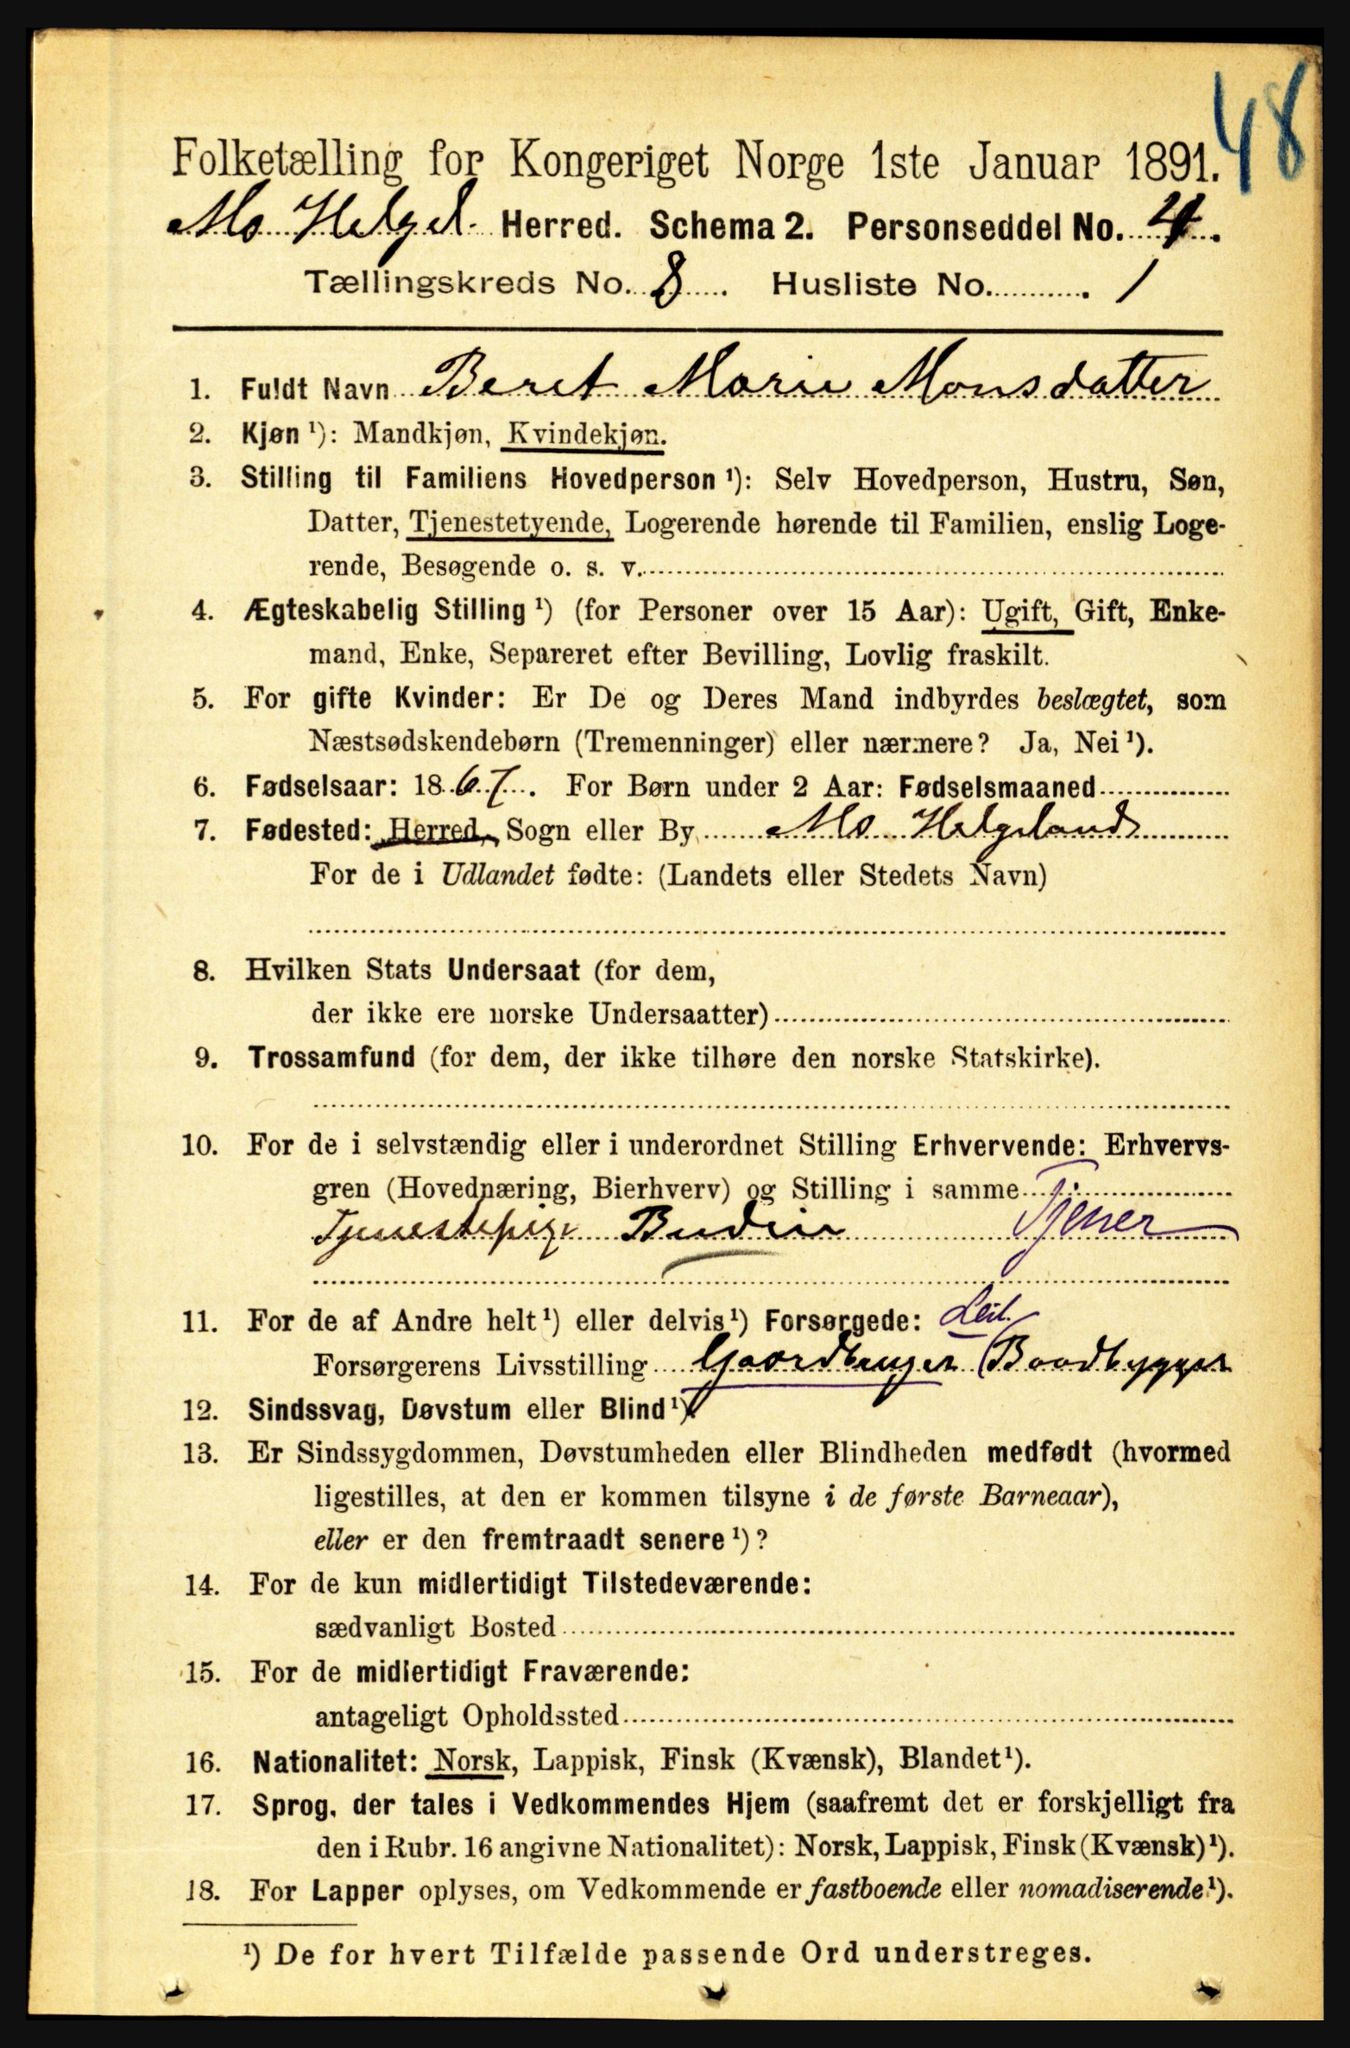 48
Folketælling for Kongeriget Norge 1ste Januar 1891.
Mo Helgel. Herred. Schema 2. Personseddel No. 4.
Tællingskreds No. 8. Husliste No. 1
1. Fuldt Navn Beret Marie Monsdatter
2. Kjøn ¹): Mandkjøn, Kvindekjøn.
3. Stilling til Familiens Hovedperson ¹): Selv Hovedperson, Hustru, Søn,
Datter, Tjenestetyende, Logerende hørende til Familien, enslig Loge-
rende, Besøgende o. s. v.
4. Ægteskabelig Stilling ¹) (for Personer over 15 Aar): Ugift, Gift, Enke-
mand, Enke, Separeret efter Bevilling, Lovlig fraskilt.
5. For gifte Kvinder: Er De og Deres Mand indbyrdes beslægtet, som
Næstsødskendebørn (Tremenninger) eller nærmere? Ja, Nei ¹).
6. Fødselsaar: 1867. For Børn under 2 Aar: Fødselsmaaned
7. Fødested: Herred, Sogn eller By Mo Helgeland
For de i Udlandet fødte: (Landets eller Stedets Navn)
8. Hvilken Stats Undersaat (for dem,
der ikke ere norske Undersaatter)
9. Trossamfund (for dem, der ikke tilhøre den norske Statskirke).
10. For de i selvstændig eller i underordnet Stilling Erhvervende: Erhvervs-
gren (Hovednæring, Bierhverv) og Stilling i samme
Tjenestepige Budeie Tjener
11. For de af Andre helt ¹) eller delvis ¹) Forsørgede: Leil.
Forsørgerens Livsstilling Gaardbruger (Baadbygger
12. Sindssvag, Døvstum eller Blind ¹).
13. Er Sindssygdommen, Døvstumheden eller Blindheden medfødt (hvormed
ligestilles, at den er kommen tilsyne i de første Barneaar),
eller er den fremtraadt senere ¹)?
14. For de kun midlertidigt Tilstedeværende:
sædvanligt Bosted
15. For de midlertidigt Fraværende:
antageligt Opholdssted
16. Nationalitet: Norsk, Lappisk, Finsk (Kvænsk), Blandet ¹).
17. Sprog, der tales i Vedkommendes Hjem (saafremt det er forskjelligt fra
den i Rubr. 16 angivne Nationalitet): Norsk, Lappisk, Finsk (Kvænsk) ¹).
18. For Lapper oplyses, om Vedkommende er fastboende eller nomadiserende ¹).
¹) De for hvert Tilfælde passende Ord understreges.